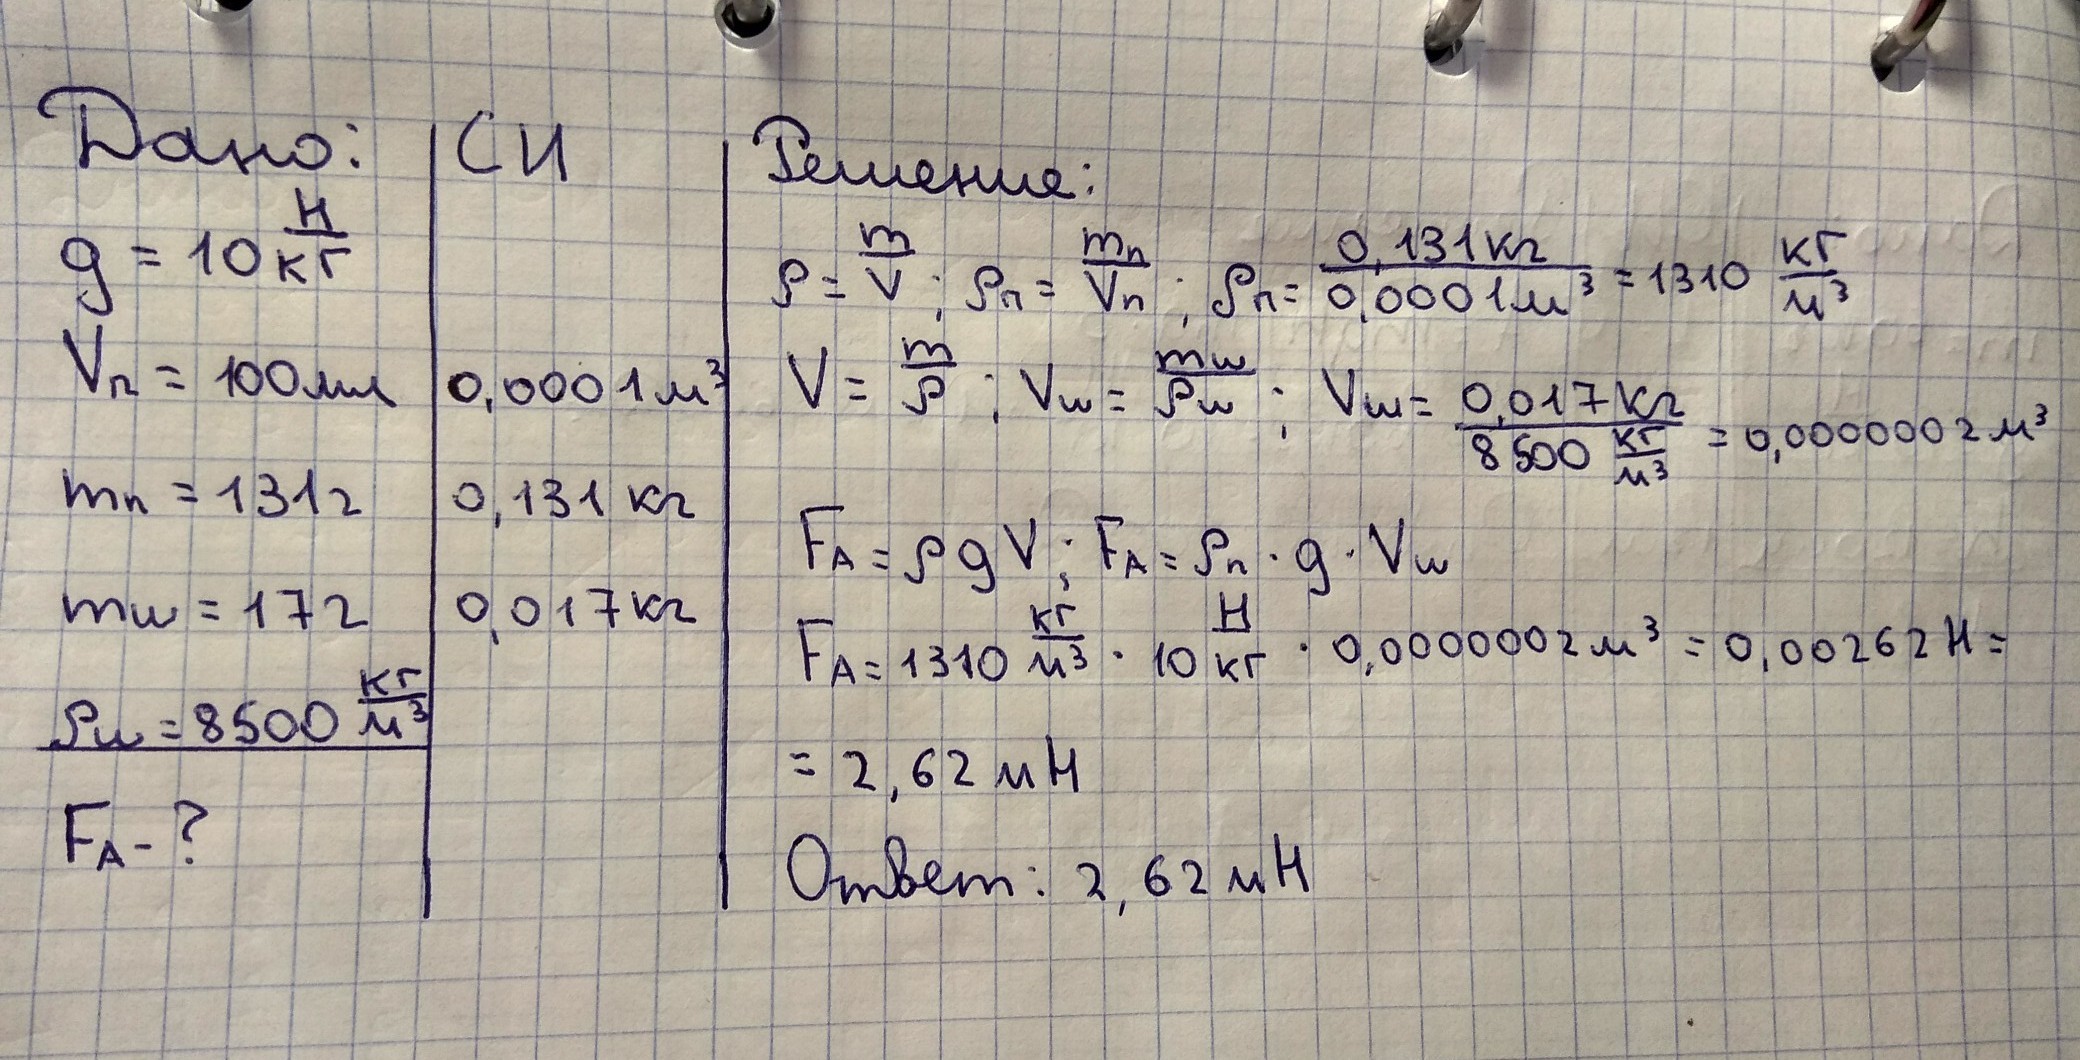 Дано:
g = 10 Н/кг
Vп = 100 мл
mп = 131 г
mш = 17 г
ρш = 8500 кг/м³
FА - ?
СИ
0,0001 м³
0,131 кг
0,017 кг
Решение:
ρ = m/V ; ρп = mп/Vп ; ρп = 0,131 кг/0,0001 м³ = 1310 кг/м³
V = m/ρ ; Vш = mш/ρш ; Vш = 0,017 кг/8500 кг/м³ = 0,0000002 м³
FА = ρgV ; FА = ρп · g · Vш
FА = 1310 кг/м³ · 10 Н/кг · 0,0000002 м³ = 0,00262 Н =
= 2,62 мН
Ответ: 2,62 мН